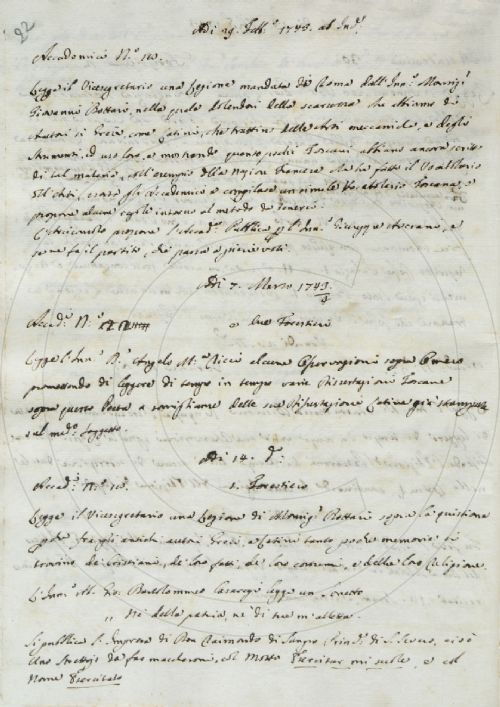 22
Adi 29. Febb.° 1743. ab Inc.
Accademici N.° 10.
Legge il Vicesegretario una Lezione mandata da Roma dall'Inn.° Monsig.
Giovanni Bottari, nella quale dolendosi della scarsezza che abbiamo di
Autori sì Greci, come Latini, che trattin delle Arti meccaniche, e degli
strumenti, ed uso loro, e mostrando quanto pochi Toscani abbiano ancora scritto
di tal materia, coll'esempio della Nazion Franzese che ha fatto il Vocabolario
dell'Arti, esorta gli Accademici a compilare un simile Vocabolario Toscano, e
propone alcune regole intorno al metodo da tenersi.
L'Arciconsolo propone l'Accad. Pubblica p l'Inn. Giuseppe Averani, e
se ne fa il partito, che passa a pieni voti.
Adi 7. Marzo 1743/4
Accad. N.°
e due Forestieri
Legge l'Inn. P. Angelo M.ª Ricci alcune Osservazioni sopra Omero
promettendo di leggere di tempo in tempo varie Dissertazioni Toscane
sopra questo Poeta a somiglianza delle sue Dissertazioni Latine già stampate
sul med.° soggetto.
Adi 14. d.°
Accad. N.° 10.
1. Forestiero
Legge il Vicesegretario una Lezione di Monsig. Bottari sopra la quistione
perchè fra gli antichi autori Greci, e Latini tanto poche memorie si
trovino de' Cristiani, de' loro fatti, de' loro costumi, e della loro Religione.
L'Inn. Ab. Gio. Bartolommeo Casaregi legge un Sonetto
,, Nè della patria, nè di me m'alletta.
Si pubblica l'Impresa di Don Raimondo di Sangro Princ. di S. Severo, cioè
uno da far maccheroni, col Motto Esercitar mi suole, e col
Nome Esercitato